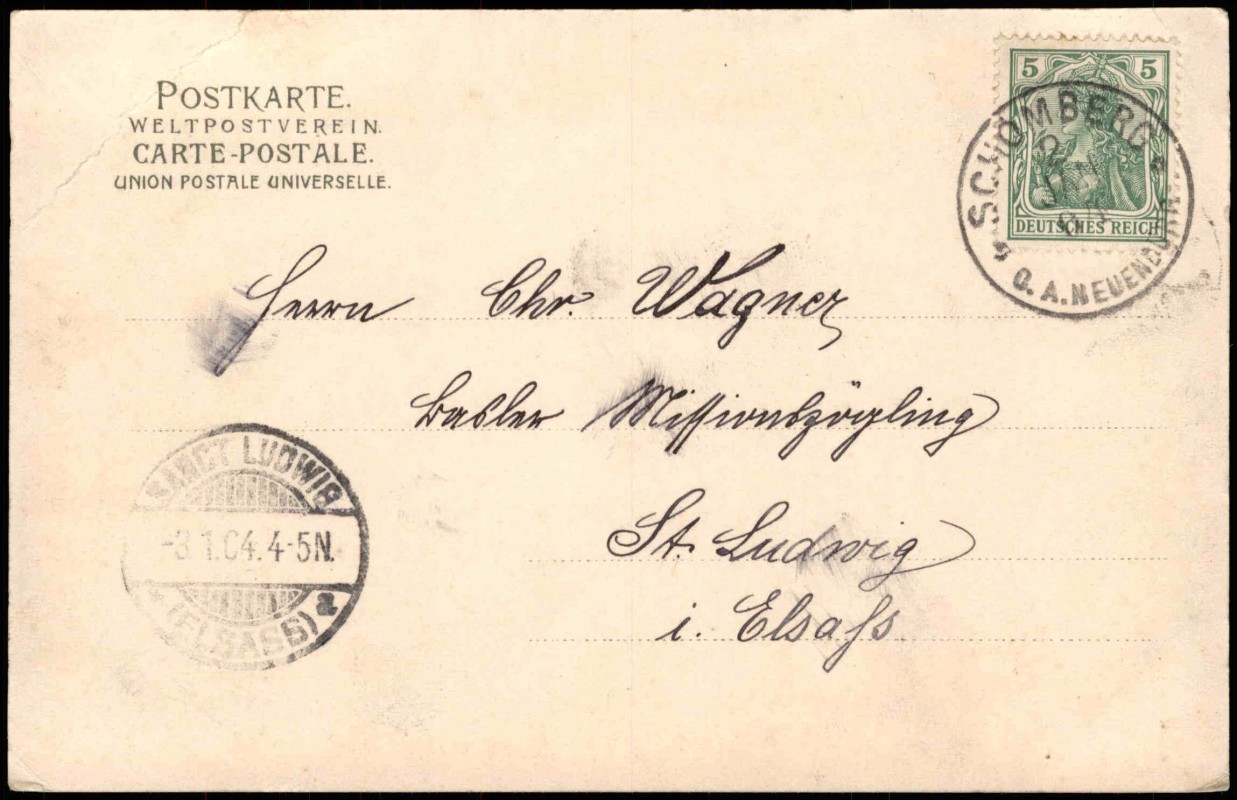 POSTKARTE.
WELTPOSTVEREIN.
CARTE-POSTALE.
UNION POSTALE UNIVERSELLE.
5 5
DEUTSCHES REICH
SCHÖMBERG
2
JAN
04
O.A. NEUENBÜRG
Herrn Chr. Wagner
Basler Missionszögling
St. Ludwig
i. Elsaß
SANCT LUDWIG
-3.1.04.4-5N.
(ELSASS)
a